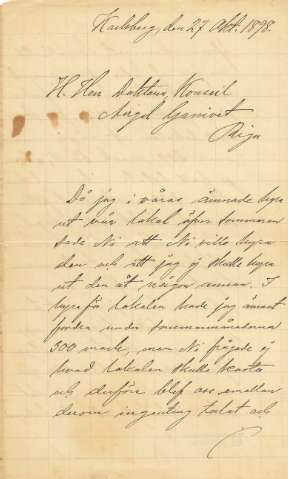 Karlsberg, den 27 Okt. 1898.
H. Herr Doktour, Konsul
Angel Ganivet
Riga
Då jag i våras ämnade hyra
ut vår lokal öfver sommaren
sade Ni att Ni ville hyra
den och att jag ej skulle hyra
ut den åt någon annan. I
hyra för lokalen hade jag ämnat
fordra under sommarmånaderna
300 mark, men Ni frågade ej
hvad lokalen skulle kosta
och derföre blef oss emellan
derom ingenting talat och